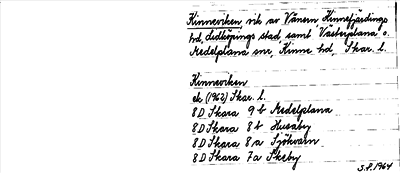 Kinneviken, vik av Vänern, Kinnefjärdings
hd, Lidköpings stad, samt Västerplana o.
Medelplana snr, Kinne hd, Skar. l.
Kinneviken
ek (1962) Skar. l.
8D Skara 9 b Medelplana
8D Skara 8 b Husaby
8D Skara 8 a Sjökvarn
8D Skara 7a Skeby
S.P. 1964